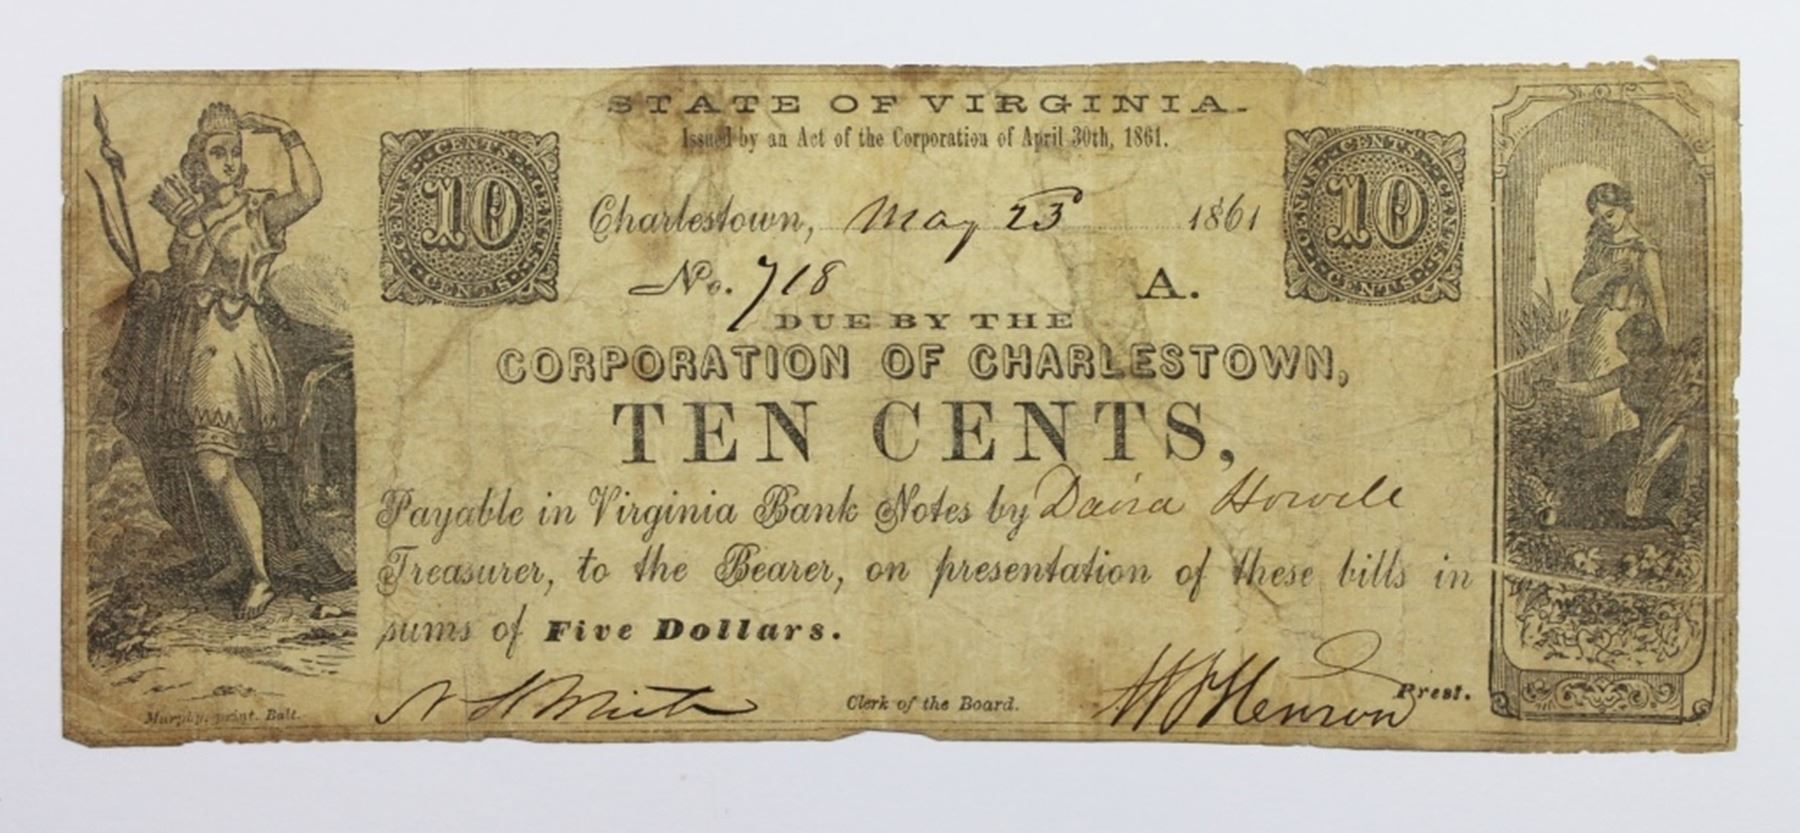 STATE OF VIRGINIA.
Issued by an Act of the Corporation of April 30th, 1861.
10
CENTS CENTS CENTS CENTS
10
CENTS CENTS CENTS CENTS
Charlestown, May 23 1861
No. 718 A.
DUE BY THE
CORPORATION OF CHARLESTOWN,
TEN CENTS,
Payable in Virginia Bank Notes by Howell
Treasurer, to the Bearer, on presentation of these bills in
sums of Five Dollars.
Clerk of the Board.
Prest.
Murphy, print. Balt.